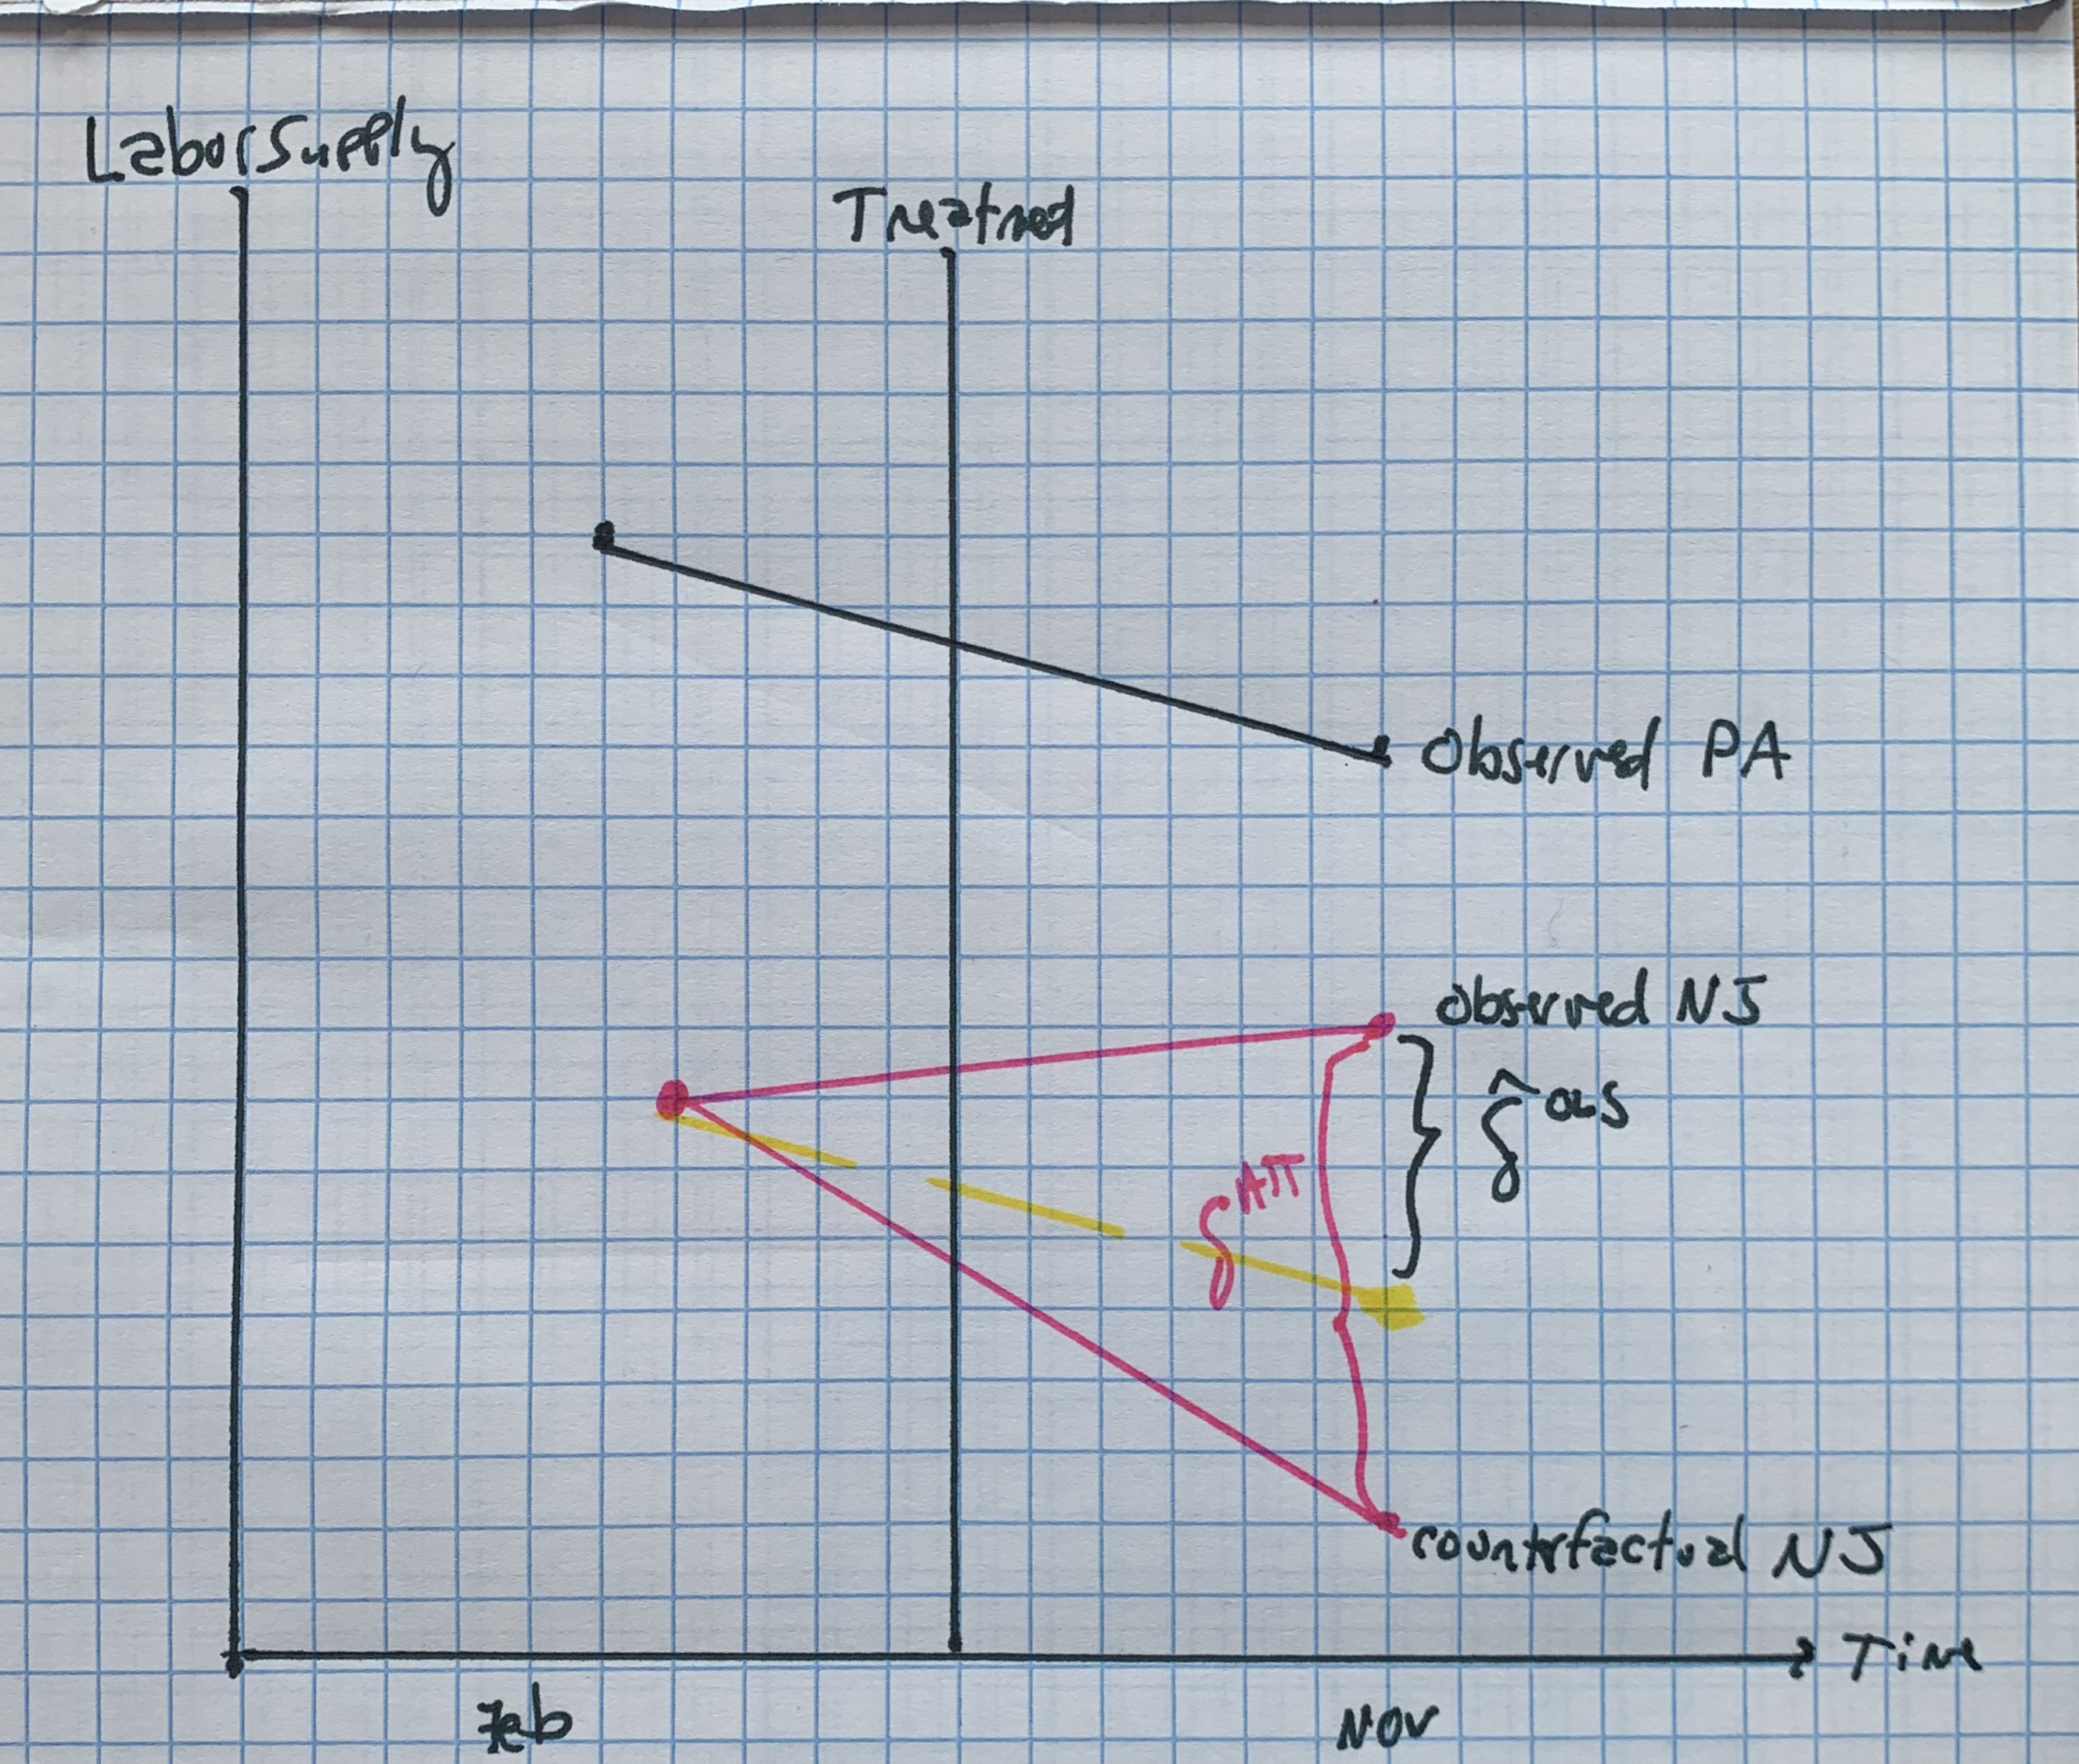 Labor Supply
Treatment
Observed PA
Observed NJ
δ̂ OLS
δ ATT
counterfactual NJ
Time
Feb
Nov